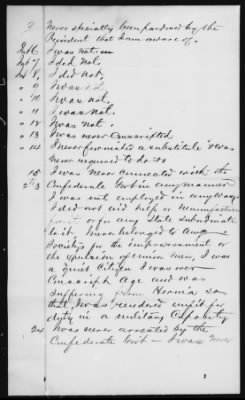 never specially been pardoned by the
President that I am aware of.
6 I was not
7 I did not.
8 I did not,
" 9 I was not
" 10 I was not,
" 11 I was not.
" 12 I was not.
" 13 I was never conscripted
" 14 I never furnished a substitute & was
never required to do so
" 15 I was never connected with the
Confederate Govt in any manner
I was not employed in any way
I did not aid help or manufacture
or for any State subordinate
to it. I never belonged to any
Society for the imprisonment or
the expulsion of union men, I was
a quiet Citizen I was over
Conscript Age and was
suffering from Hernia so
that I was rendered unfit for
duty in a military Capacity
24 I was never arrested by the
Confederate Govt - I was never